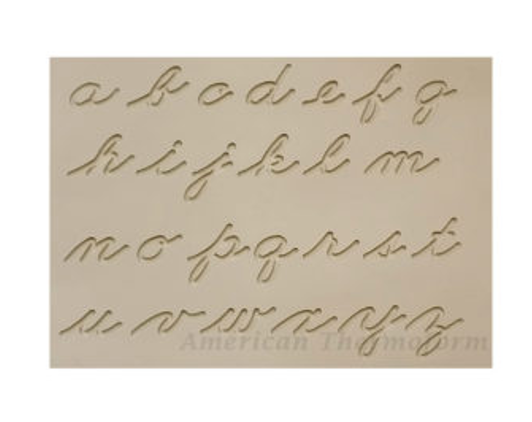 a b c d e f g
h i j k l m
n o p q r s t
u v w x y z
American Thermoform